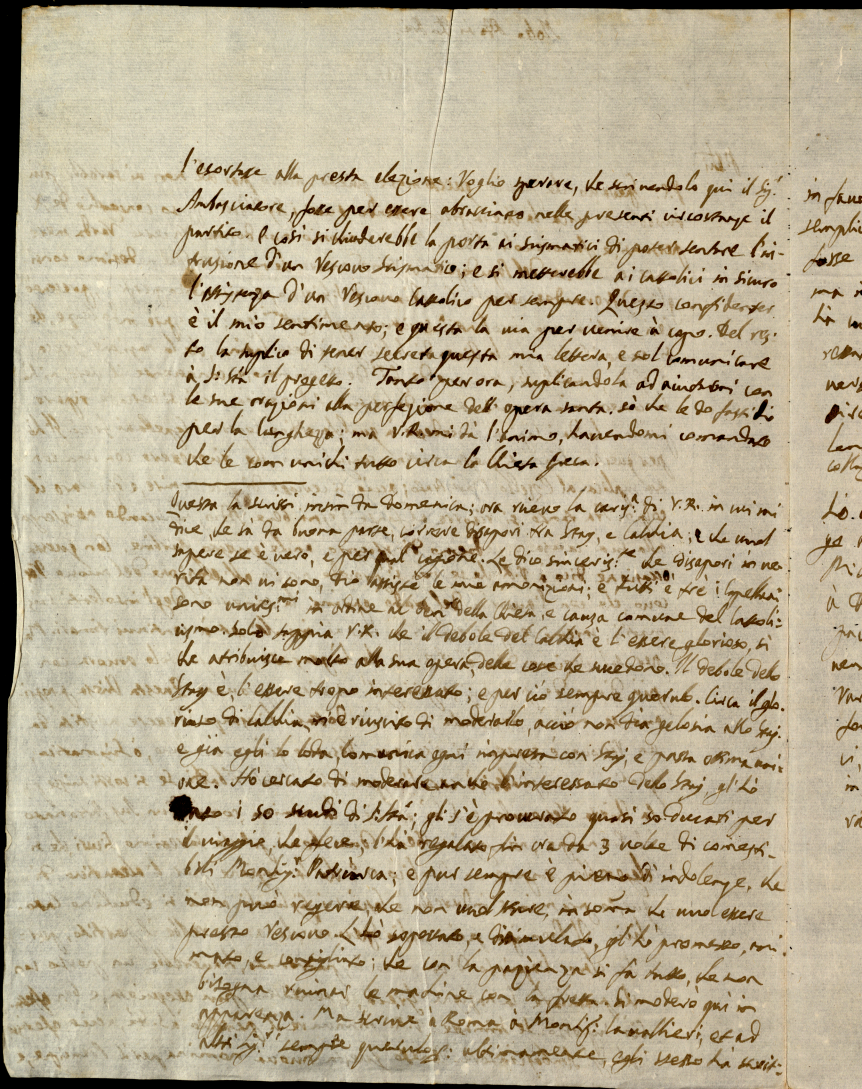 l'esortasse alla presta elezione: Voglio sperare, che scrivendolo qui il Sig.r
Ambasciatore, fosse per essere abbracciato nelle presenti circostanze il
partito. e così si chiuderebbe la porta ai scismatici di poter sentare l'in-
trusione d'un Vescovo scismatico; e si metterebbe ai cattolici in sicuro
l'assistenza d'un Vescovo Cattolico per sempre. Questo confidenter
è il mio sentimento; e questa la via per venire à capo. Del res-
to la suplico di tener secreta questa mia lettera, e sol comunicare
à S. Stà il progetto. Tanto per ora, suplicandola ad aiutarmi con
le sue orazioni alla perfezione dell'opera santa. sò che le do fastidio
per la lunghezza; ma V.R. mi dà l'animo, havendomi comandato
che le communichi tutto circa la Chiesa Greca.
Questa la scrissi insin da Domenica; ora ricevo la cariss.a di V.R. in cui mi
dice, che sà da buona parte, correre disapori tra Stay, e Caldia; e che vuol
sapere se è vero, e per qual cagione. Le dico sinceriss.te che disapori in ve-
rità non vi sono, le mie amonizioni; e tutti e trè i Cappellani
sono unitiss.mi in ordine al ben della Chiesa, e causa comune del Cattoli-
cismo. Solo sappia V.R. che il debole del Caldia è l'essere glorioso, si
che atribuisce molto alla sua opera, delle cose che succedono. Il debole dello
Stay è l'essere tropo interessato; e per ciò sempre querulo. Circa il glo-
rioso di Caldia, mi è riuscito di moderarlo, acciò non dia gelosia allo Stay.
e già egli lo loda, comunica ogni  con Stay, e passa ottima uni-
one. Hò cercato di moderare anche l'interessato dello Stay, gl'hò
dato i 50 scudi di S. Stà; gli s'è procurato quasi 30 Ducati per
il viaggio, che fece; l'hà regalato fin ora da 3 volte di comesti-
bili Monsig.r Patriarca; e pur sempre è pieno di indolenze, che
non può reggere, che non vuol stare, in soma che vuol essere
presto Vescovo. L'hò sopportato, e dissimulato, gl'hò promesso, ani-
mato, e consigliato; che con la pazienza si fa tutto, che non
bisogna rovinar le machine con la fretta. Si moderò qui in
apparenza. Ma scrive à Roma à Monsig.r Cavallieri, et ad
altri sig.ri sempre querulo: ultimamente, egli stesso hà scrit-